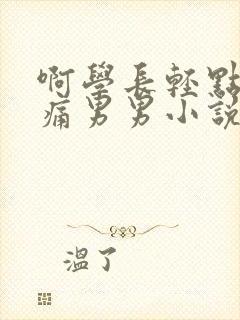 啊學長輕點
痛男男小說
溫了